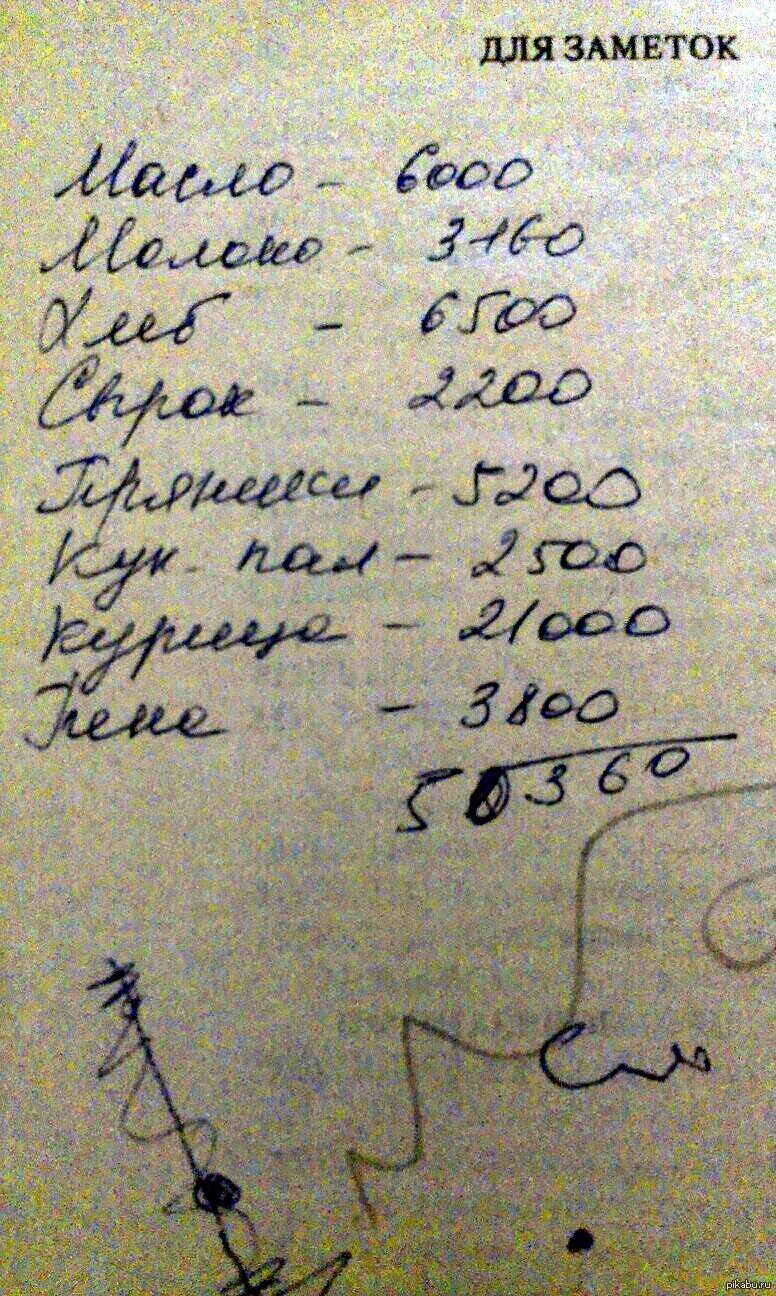 ДЛЯ ЗАМЕТОК
Масло - 6000
Молоко - 3160
Хлеб - 6500
Сырок - 2200
Пряники - 5200
Кук. пал - 2500
курица - 21000
Пена - 3800
50360
pikabu.ru